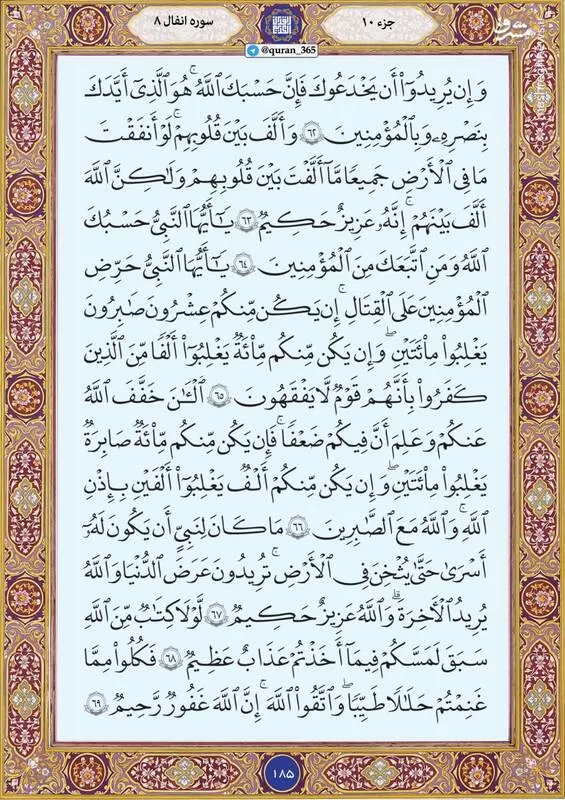 جزء ۱۰
سوره انفال ۸
@quran_365
وَإِن يُرِيدُوٓا۟ أَن يَخْدَعُوكَ فَإِنَّ حَسْبَكَ ٱللَّهُ ۚ هُوَ ٱلَّذِىٓ أَيَّدَكَ
بِنَصْرِهِۦ وَبِٱلْمُؤْمِنِينَ ۶۲ وَأَلَّفَ بَيْنَ قُلُوبِهِمْ ۚ لَوْ أَنفَقْتَ
مَا فِى ٱلْأَرْضِ جَمِيعًا مَّآ أَلَّفْتَ بَيْنَ قُلُوبِهِمْ وَلَـٰكِنَّ ٱللَّهَ
أَلَّفَ بَيْنَهُمْ ۚ إِنَّهُۥ عَزِيزٌ حَكِيمٌ ۶۳ يَـٰٓأَيُّهَا ٱلنَّبِىُّ حَسْبُكَ
ٱللَّهُ وَمَنِ ٱتَّبَعَكَ مِنَ ٱلْمُؤْمِنِينَ ۶۴ يَـٰٓأَيُّهَا ٱلنَّبِىُّ حَرِّضِ
ٱلْمُؤْمِنِينَ عَلَى ٱلْقِتَالِ ۚ إِن يَكُن مِّنكُمْ عِشْرُونَ صَـٰبِرُونَ
يَغْلِبُوا۟ مِا۟ئَتَيْنِ ۚ وَإِن يَكُن مِّنكُم مِّا۟ئَةٌ يَغْلِبُوٓا۟ أَلْفًا مِّنَ ٱلَّذِينَ
كَفَرُوا۟ بِأَنَّهُمْ قَوْمٌ لَّا يَفْقَهُونَ ۶۵ ٱلْـَٔـٰنَ خَفَّفَ ٱللَّهُ
عَنكُمْ وَعَلِمَ أَنَّ فِيكُمْ ضَعْفًا ۚ فَإِن يَكُن مِّنكُم مِّا۟ئَةٌ صَابِرَةٌ
يَغْلِبُوا۟ مِا۟ئَتَيْنِ ۚ وَإِن يَكُن مِّنكُمْ أَلْفٌ يَغْلِبُوٓا۟ أَلْفَيْنِ بِإِذْنِ
ٱللَّهِ ۗ وَٱللَّهُ مَعَ ٱلصَّـٰبِرِينَ ۶۶ مَا كَانَ لِنَبِىٍّ أَن يَكُونَ لَهُۥٓ
أَسْرَىٰ حَتَّىٰ يُثْخِنَ فِى ٱلْأَرْضِ ۚ تُرِيدُونَ عَرَضَ ٱلدُّنْيَا وَٱللَّهُ
يُرِيدُ ٱلْـَٔاخِرَةَ ۗ وَٱللَّهُ عَزِيزٌ حَكِيمٌ ۶۷ لَّوْلَا كِتَـٰبٌ مِّنَ ٱللَّهِ
سَبَقَ لَمَسَّكُمْ فِيمَآ أَخَذْتُمْ عَذَابٌ عَظِيمٌ ۶۸ فَكُلُوا۟ مِمَّا
غَنِمْتُمْ حَلَـٰلًا طَيِّبًا ۚ وَٱتَّقُوا۟ ٱللَّهَ ۚ إِنَّ ٱللَّهَ غَفُورٌ رَّحِيمٌ ۶۹
۱۸۵